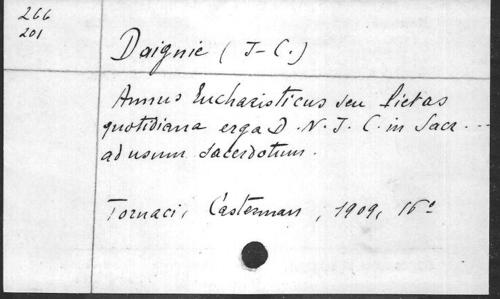 266
201
Daignie (J-C.)
Annus Eucharisticus seu Pietas
quotidiana erga D. N. J. C. in Sacr...
ad usum sacerdotum.
Tornaci, Casterman, 1909, 16°